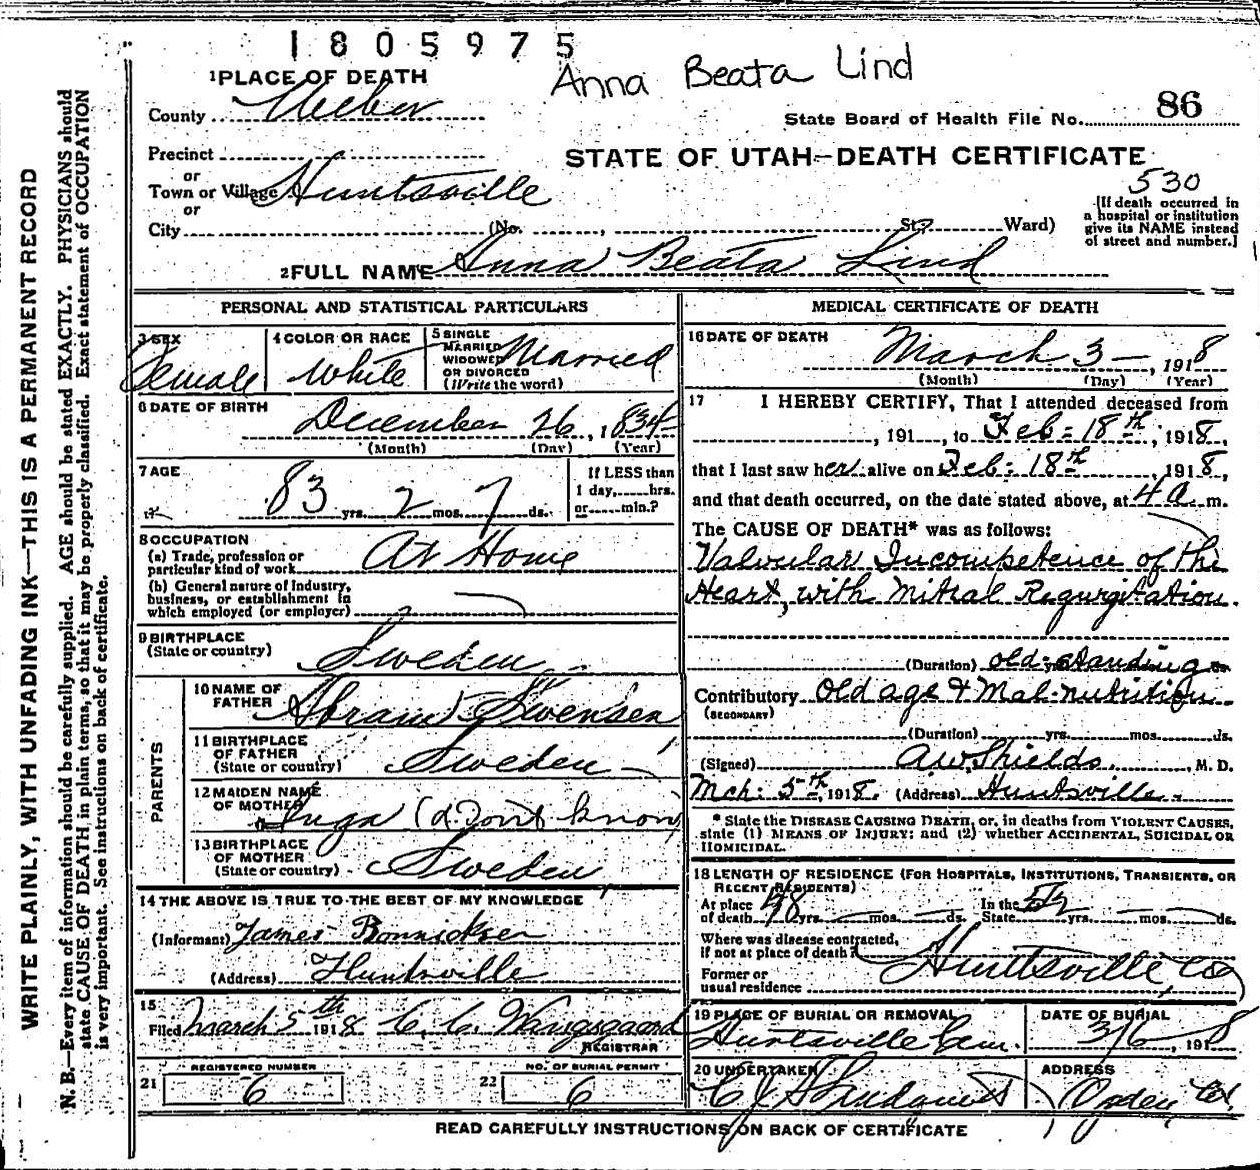 1805975
Anna Beata Lind
1 PLACE OF DEATH
County Weber
State Board of Health File No. 86
Precinct
or
STATE OF UTAH—DEATH CERTIFICATE
Town or Village Huntsville
530
or
City (No. , St. Ward)
[If death occurred in
a hospital or institution
give its NAME instead
of street and number.]
2 FULL NAME Anna Beata Lind
PERSONAL AND STATISTICAL PARTICULARS
3 SEX
Female
4 COLOR OR RACE
White
5 SINGLE
MARRIED
WIDOWED
OR DIVORCED
(Write the word)
Married
6 DATE OF BIRTH
December 26, 1834
(Month) (Day) (Year)
7 AGE
83 yrs. 2 mos. 7 ds.
If LESS than
1 day, hrs.
or min.?
8 OCCUPATION
(a) Trade, profession or
particular kind of work At Home
(b) General nature of Industry,
business, or establishment in
which employed (or employer)
9 BIRTHPLACE
(State or country) Sweden
PARENTS
10 NAME OF
FATHER Abram Swensen
11 BIRTHPLACE
OF FATHER
(State or country) Sweden
12 MAIDEN NAME
OF MOTHER Inga (don't know)
13 BIRTHPLACE
OF MOTHER
(State or country) Sweden
14 THE ABOVE IS TRUE TO THE BEST OF MY KNOWLEDGE
(Informant) James Bonnicksen
(Address) Huntsville
15
Filed March 5th 1918 C. C. Wangsgaard
REGISTRAR
21 REGISTERED NUMBER
6
22 NO. OF BURIAL PERMIT
6
MEDICAL CERTIFICATE OF DEATH
16 DATE OF DEATH
March 3 —, 1918
(Month) (Day) (Year)
17 I HEREBY CERTIFY, That I attended deceased from
, 191 , to Feb. 18th, 1918,
that I last saw her alive on Feb. 18th, 1918,
and that death occurred, on the date stated above, at 4 a. m.
The CAUSE OF DEATH* was as follows:
Valvular Incompetence of the
Heart, with Mitral Regurgitation.
(Duration) old standing ds.
Contributory Old age & Mal-nutrition
(SECONDARY)
(Duration) yrs. mos. ds.
(Signed) A.W. Shields, M. D.
Mch. 5th, 1918. (Address) Huntsville
* State the DISEASE CAUSING DEATH, or, in deaths from VIOLENT CAUSES,
state (1) MEANS OF INJURY; and (2) whether ACCIDENTAL, SUICIDAL OR
HOMICIDAL.
18 LENGTH OF RESIDENCE (FOR HOSPITALS, INSTITUTIONS, TRANSIENTS, OR
RECENT RESIDENTS)
At place
of death yrs. mos. ds. In the
State yrs. mos. ds.
Where was disease contracted,
if not at place of death? Huntsville
Former or
usual residence
19 PLACE OF BURIAL OR REMOVAL
Huntsville Cem.
DATE OF BURIAL
3/6, 1918
20 UNDERTAKER
ADDRESS
Ogden Ut.
READ CAREFULLY INSTRUCTIONS ON BACK OF CERTIFICATE
WRITE PLAINLY, WITH UNFADING INK—THIS IS A PERMANENT RECORD
N. B.—Every item of information should be carefully supplied. AGE should be stated EXACTLY. PHYSICIANS should
state CAUSE OF DEATH in plain terms, so that it may be properly classified. Exact statement of OCCUPATION
is very important. See instructions on back of certificate.